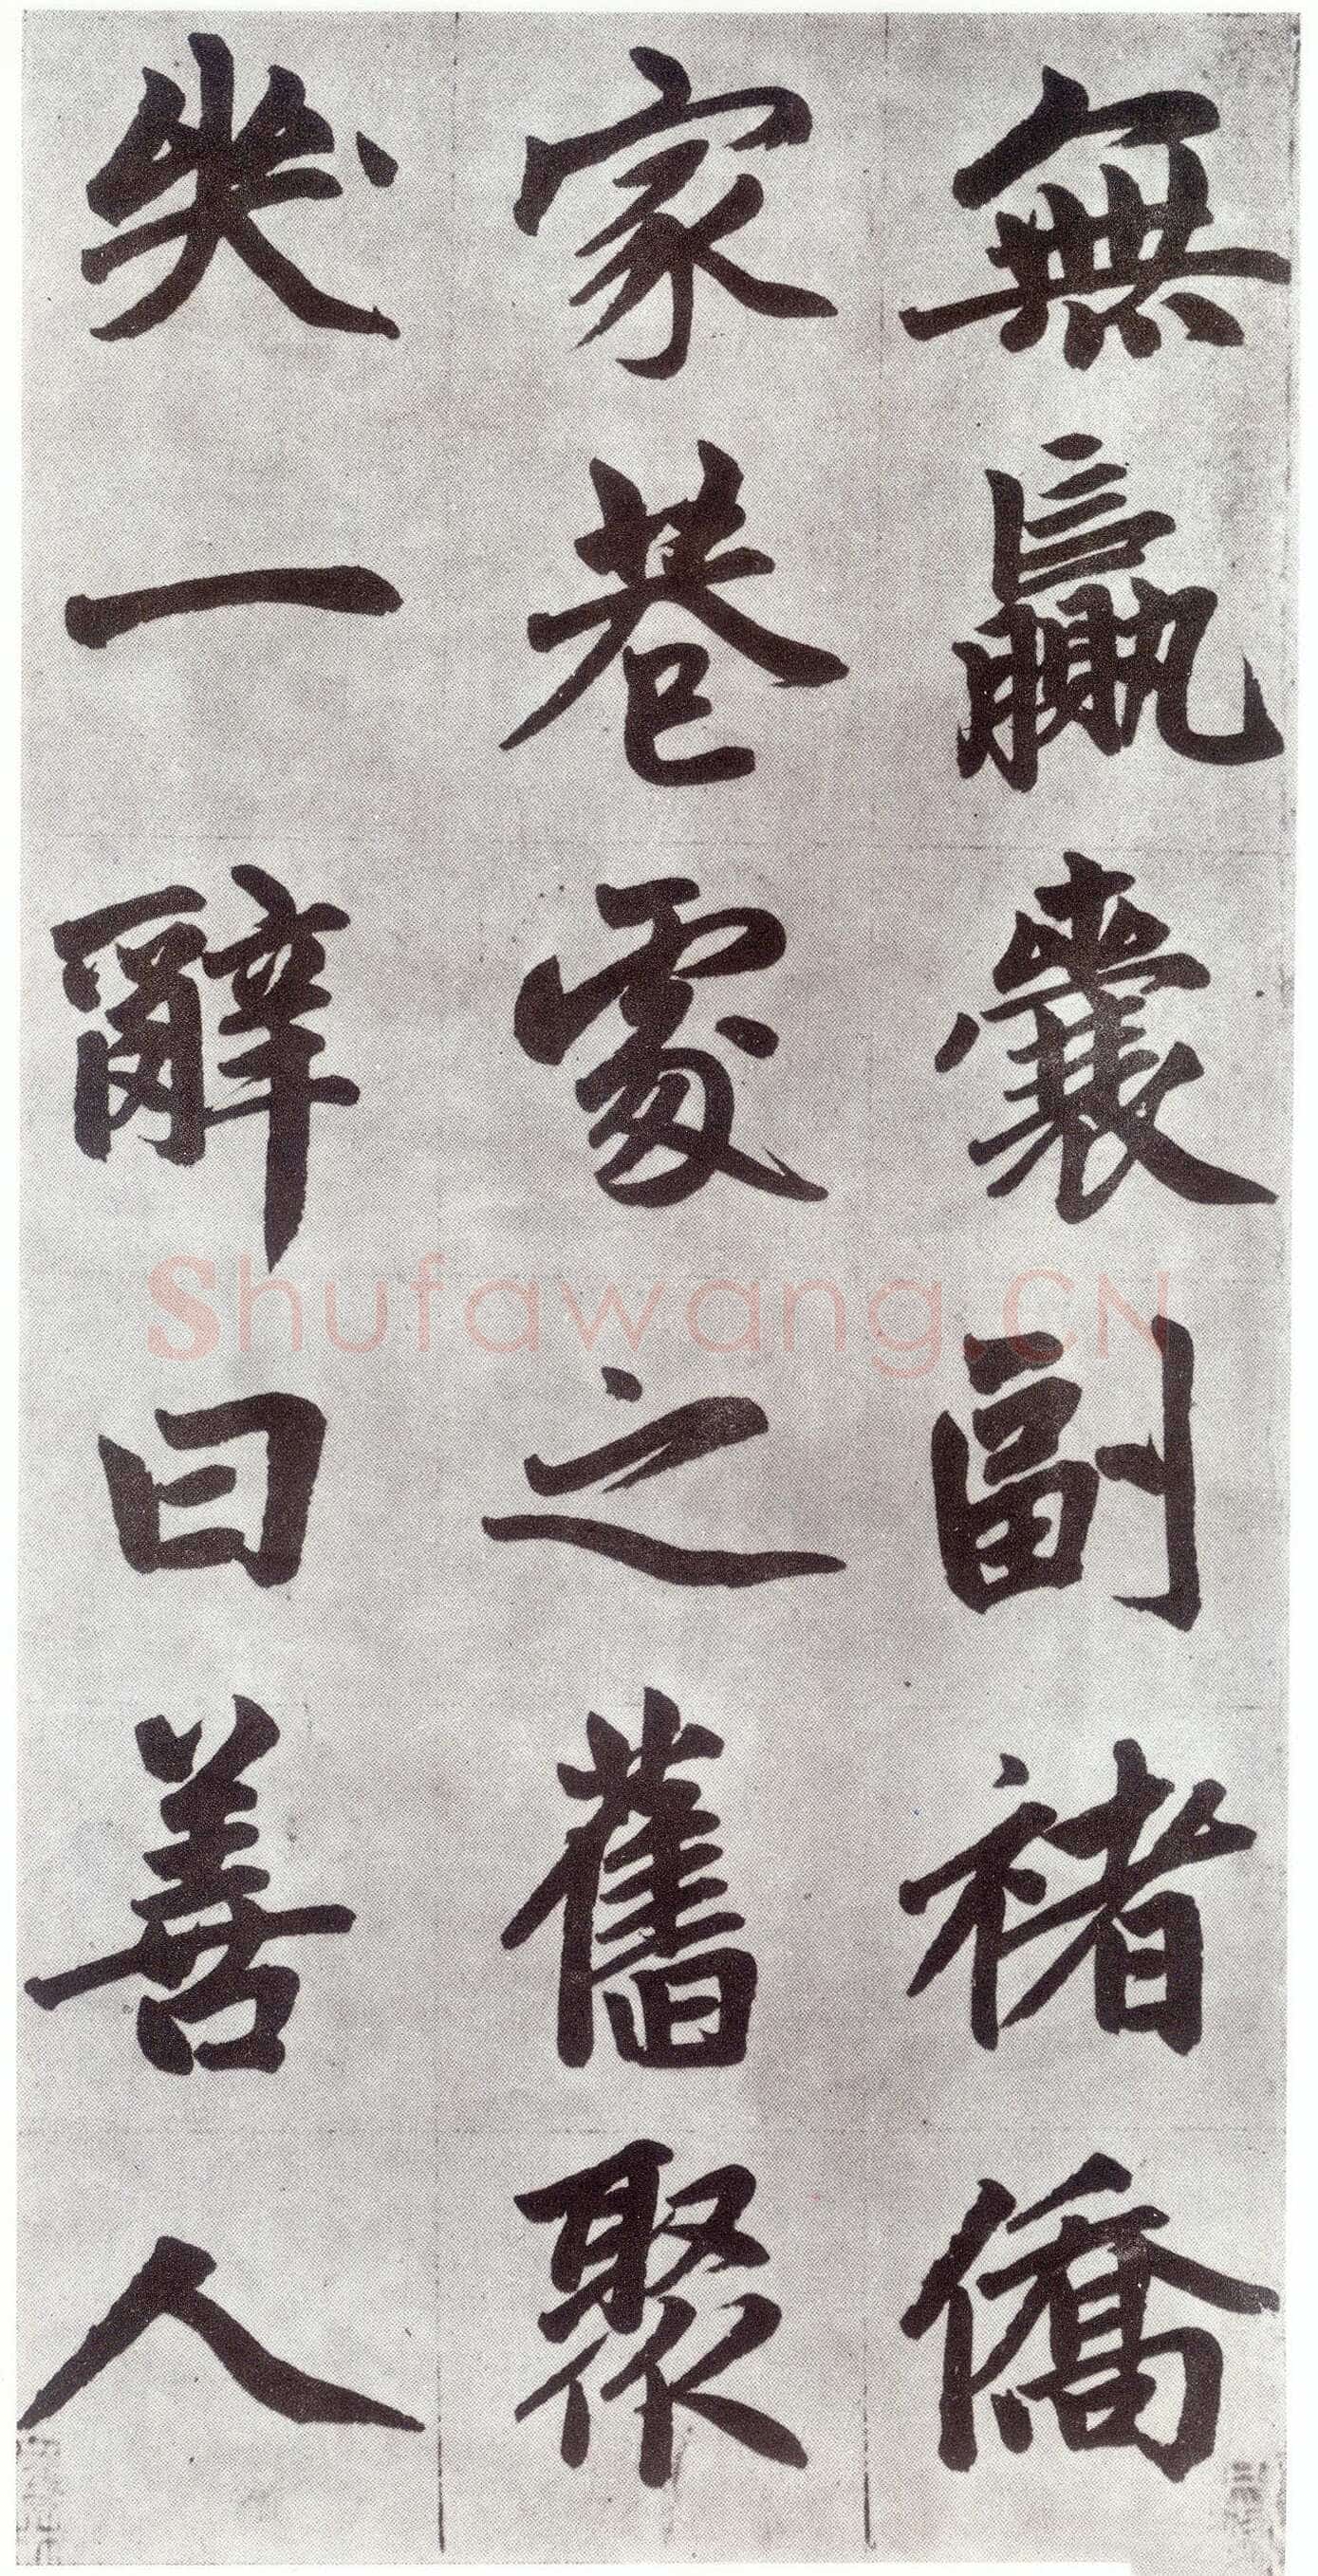 無贏囊副褚僑
家巷處之舊聚
哭一辭曰善人
Shufawang.CN